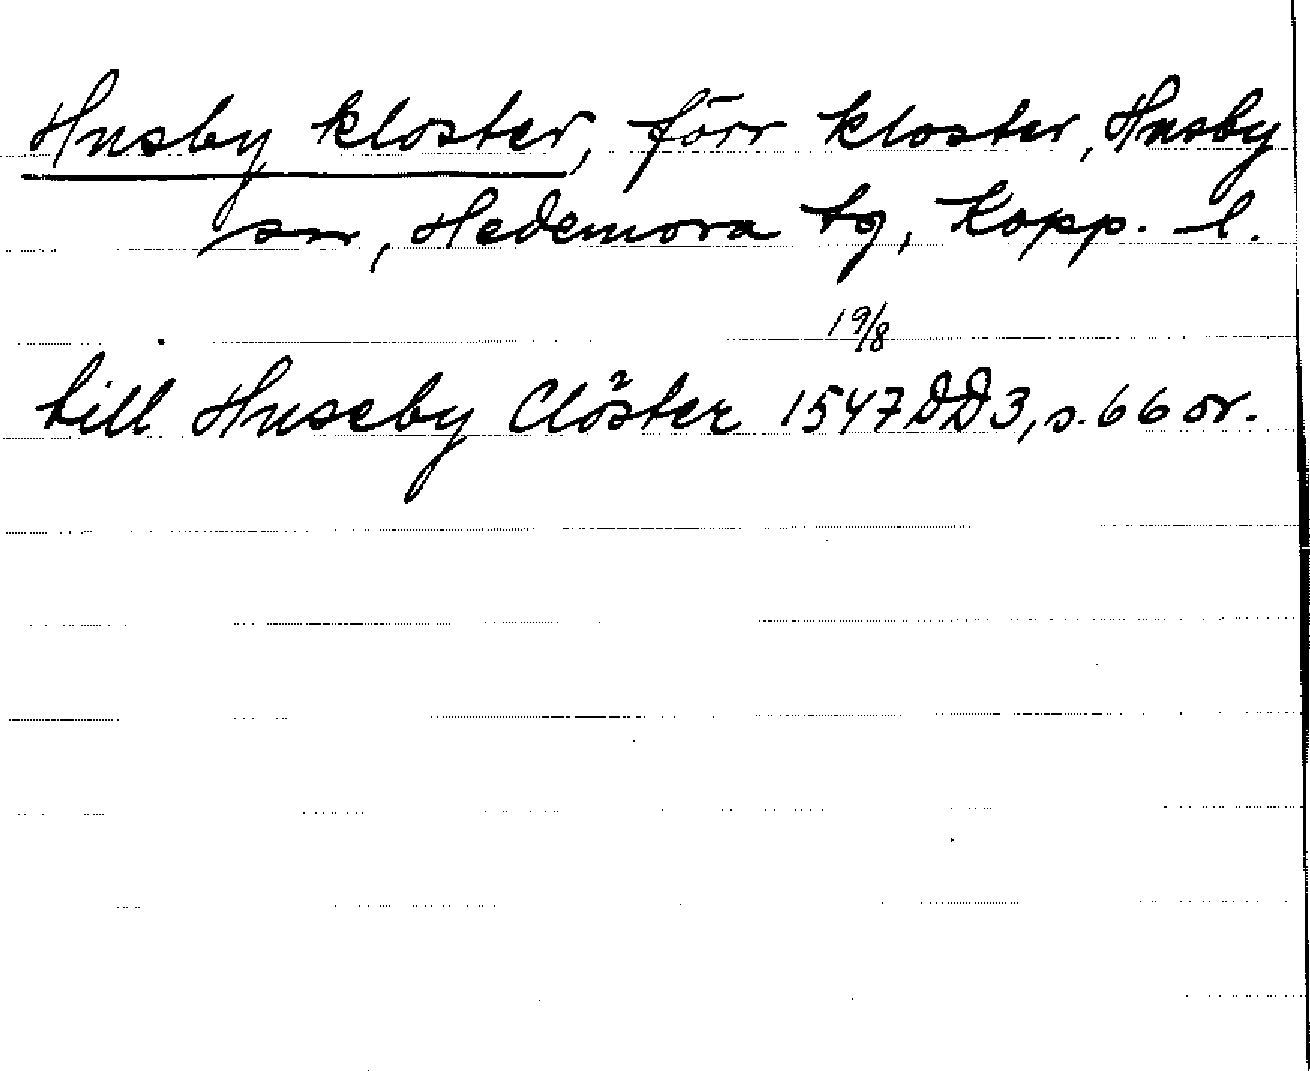 Husby kloster, förr kloster, Husby
sn, Hedemora tg, Kopp. l.
19/8
till Huseby Clöster 1547 DD3, s. 66 or.